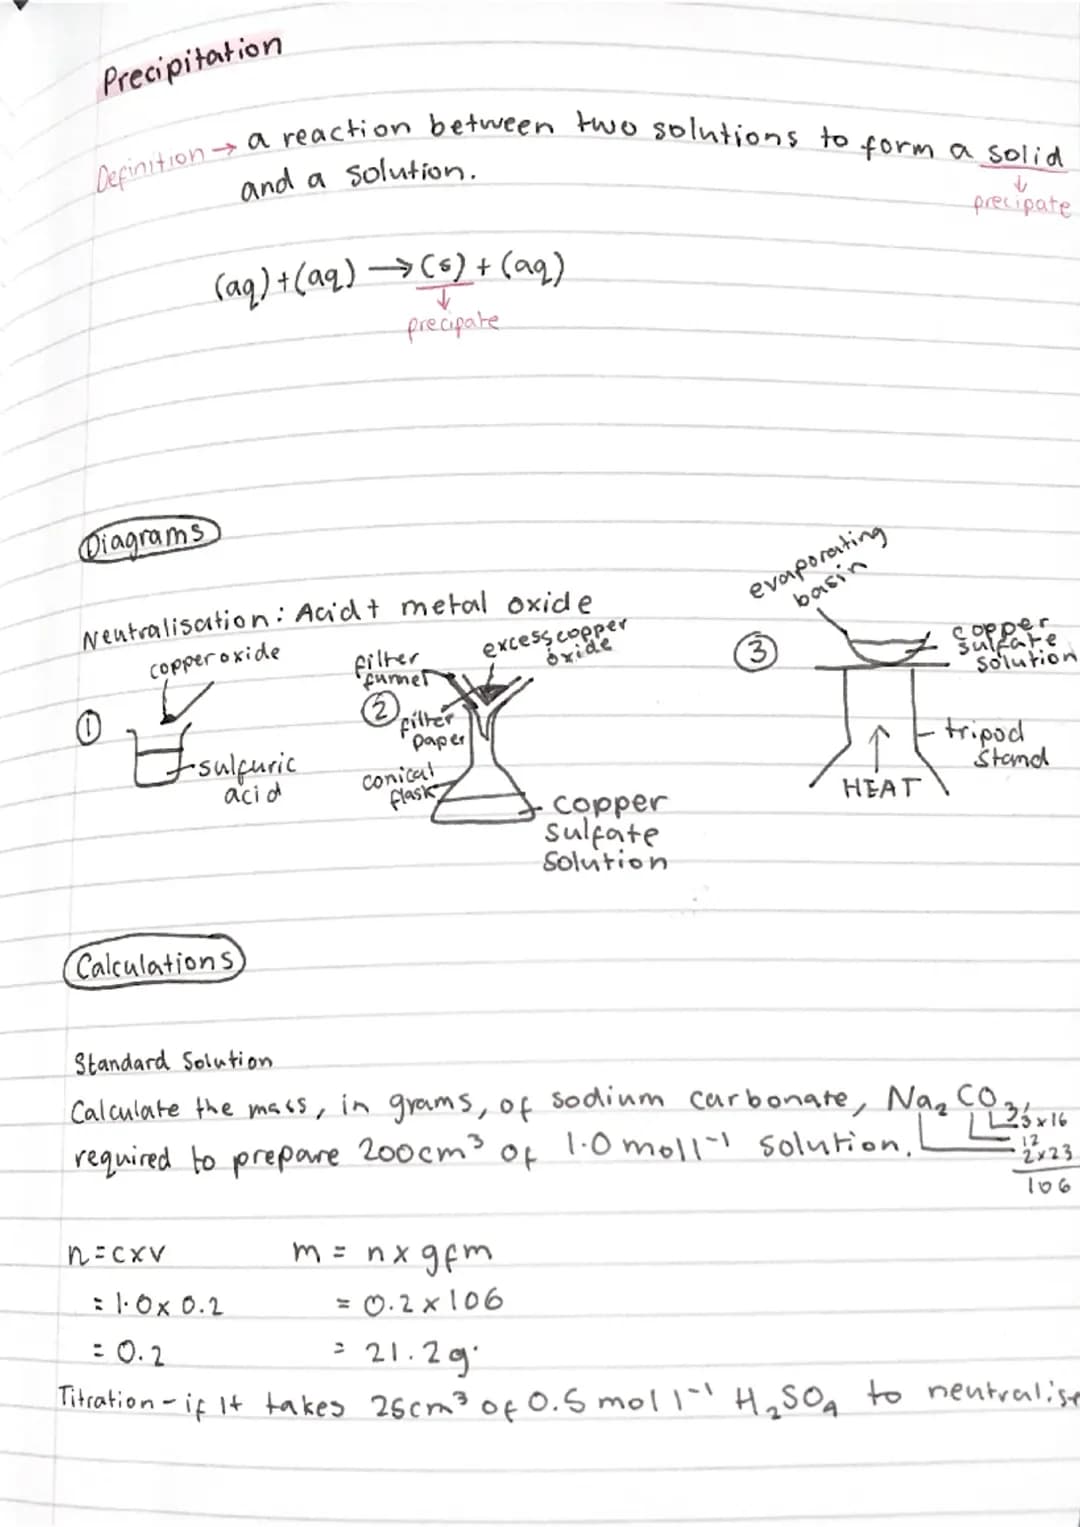 Precipitation
Definition → a reaction between two solutions to form a solid
and a solution.
↓
precipate
(aq) + (aq) → (s) + (aq)
↓
precipate
Diagrams
Neutralisation: Acid + metal oxide
copper oxide
①
sulfuric
acid
filter
funnel
excess copper
oxide
②
filter
paper
conical
flask
copper
sulfate
solution
evaporating
basin
③
copper
sulfate
solution
tripod
stand
↑
HEAT
Calculations
Standard Solution
Calculate the mass, in grams, of sodium carbonate, Na₂CO₃,
required to prepare 200cm³ of 1.0 moll⁻¹ solution.
3x16
12
2x23
106
n=cxv
= 1.0x 0.2
= 0.2
m = n x gfm
= 0.2 x 106
= 21.2g.
Titration - if It takes 25cm³ of 0.5 mol l⁻¹ H₂SO₄ to neutralise